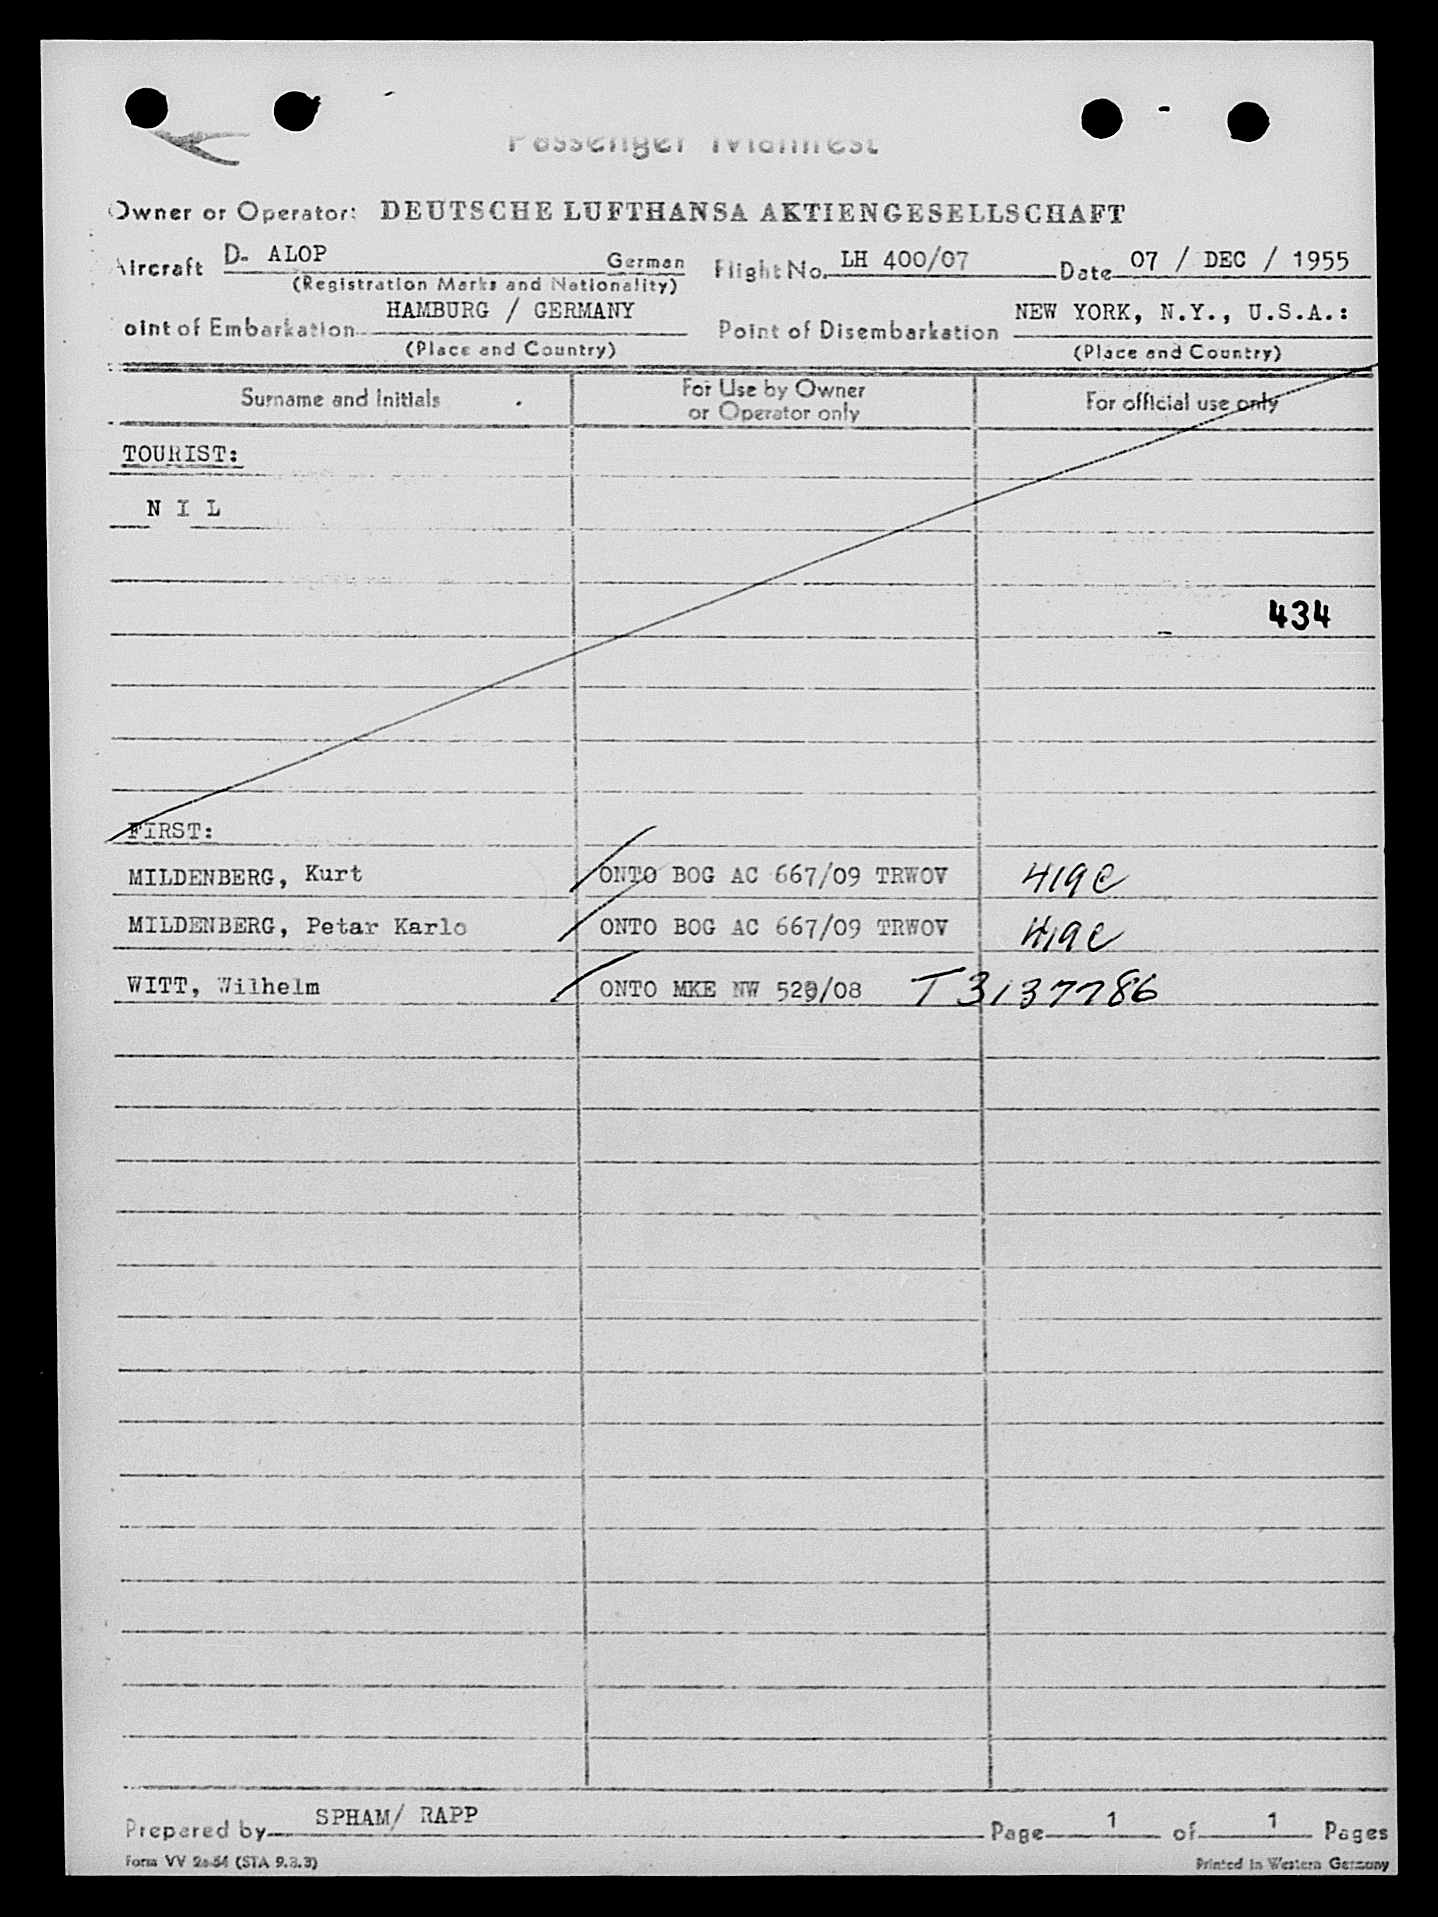 Passenger Manifest
Owner or Operator: DEUTSCHE LUFTHANSA AKTIENGESELLSCHAFT
Aircraft D- ALOP German Flight No. LH 400/07 Date 07 / DEC / 1955
(Registration Marks and Nationality)
Point of Embarkation HAMBURG / GERMANY Point of Disembarkation NEW YORK, N.Y., U.S.A.:
(Place and Country) (Place and Country)
Surname and Initials For Use by Owner or Operator only For official use only
TOURIST:
N I L
434
FIRST:
MILDENBERG, Kurt ONTO BOG AC 667/09 TRWOV 419C
MILDENBERG, Petar Karlo ONTO BOG AC 667/09 TRWOV 419C
WITT, Wilhelm ONTO MKE NW 529/08 T3137786
Prepared by SPHAM/ RAPP Page 1 of 1 Pages
Form VV 2a-54 (STA 9.3.3) Printed in Western Germany